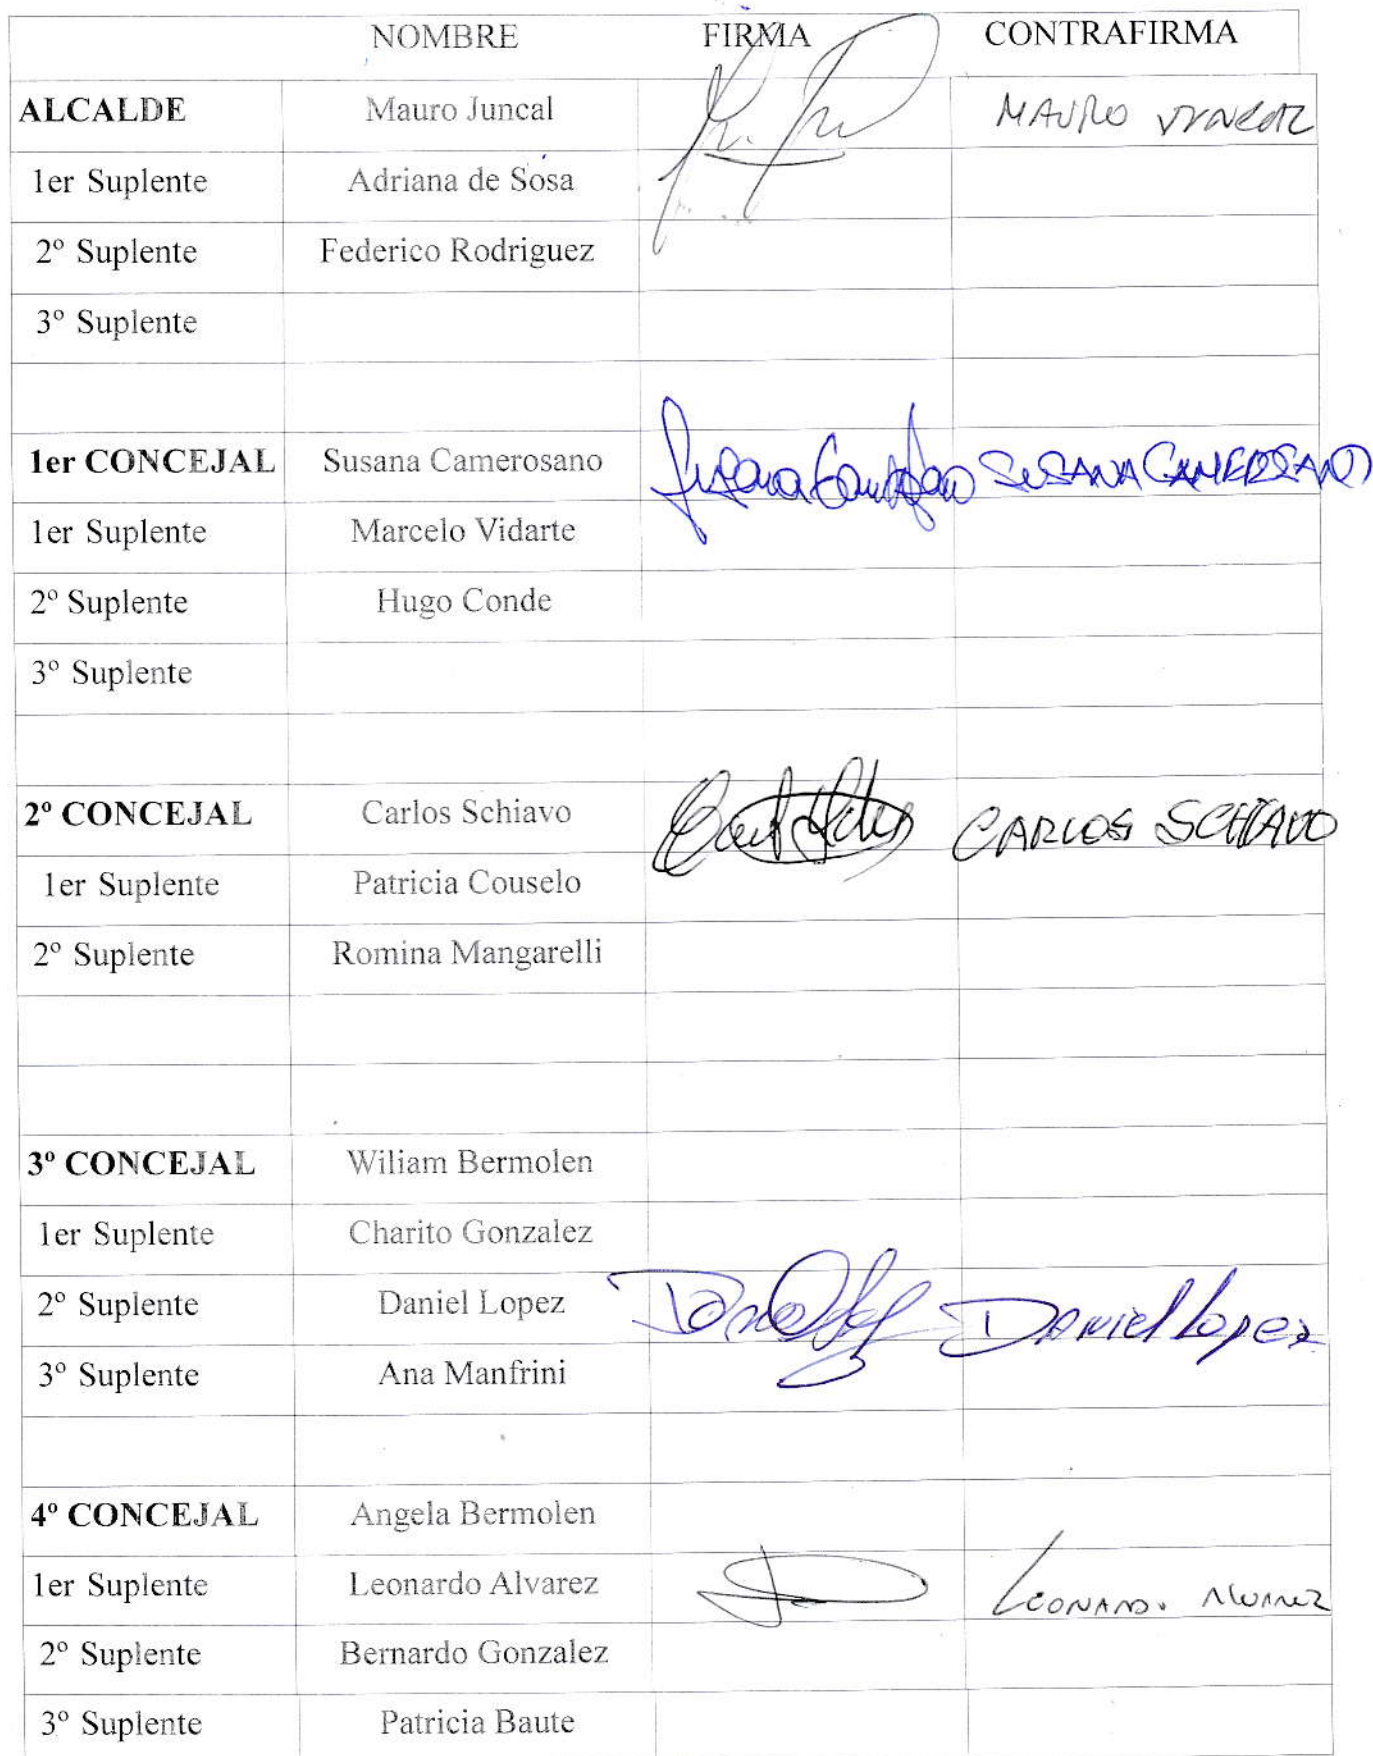 NOMBRE FIRMA CONTRAFIRMA
ALCALDE Mauro Juncal MAURO JUNCAL
1er Suplente Adriana de Sosa
2º Suplente Federico Rodriguez
3º Suplente
1er CONCEJAL Susana Camerosano SUSANA CAMEROSANO
1er Suplente Marcelo Vidarte
2º Suplente Hugo Conde
3º Suplente
2º CONCEJAL Carlos Schiavo CARLOS SCHIAVO
1er Suplente Patricia Couselo
2º Suplente Romina Mangarelli
3º CONCEJAL Wiliam Bermolen
1er Suplente Charito Gonzalez
2º Suplente Daniel Lopez Daniel Lopez
3º Suplente Ana Manfrini
4º CONCEJAL Angela Bermolen
1er Suplente Leonardo Alvarez LEONARDO ALVAREZ
2º Suplente Bernardo Gonzalez
3º Suplente Patricia Baute